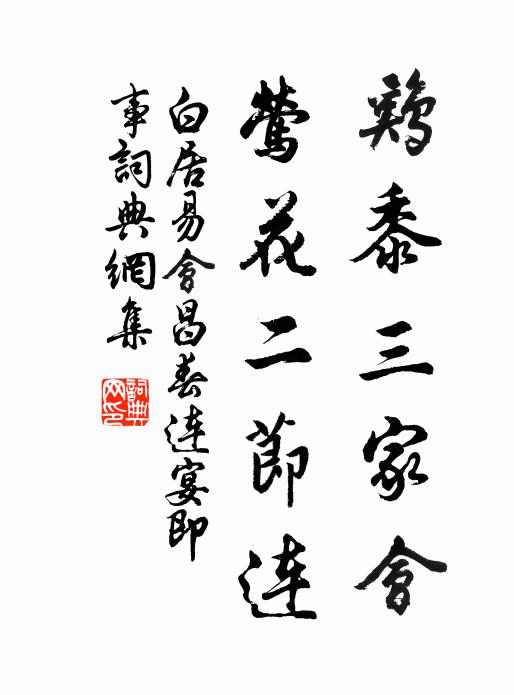 鷄黍三家會
鶯花二節連
白居易會昌春連宴即
事詞典網集
詞典網印